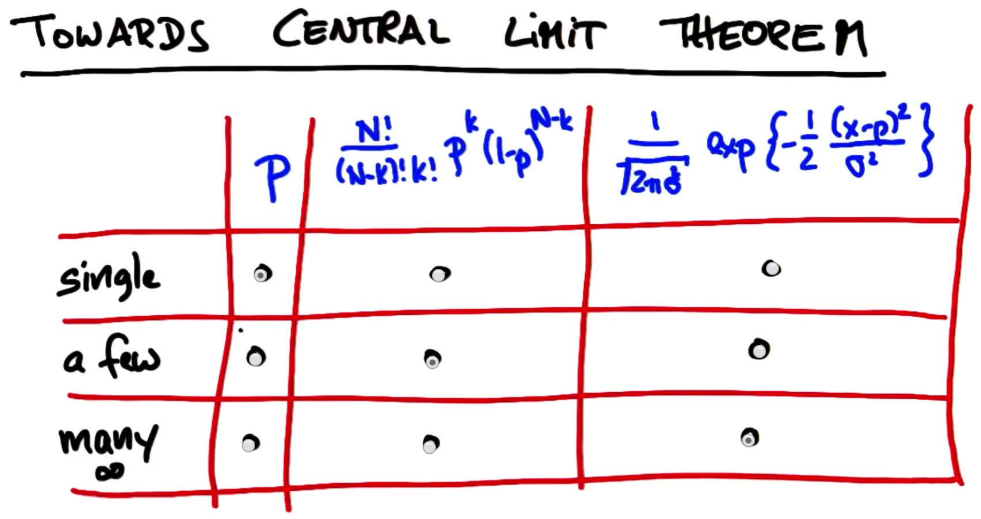 TOWARDS CENTRAL LIMIT THEOREM
P N!/(N-k)!k! p^k (1-p)^N-k 1/√2πσ exp {-1/2 (x-μ)²/σ²}
single
a few
many
∞